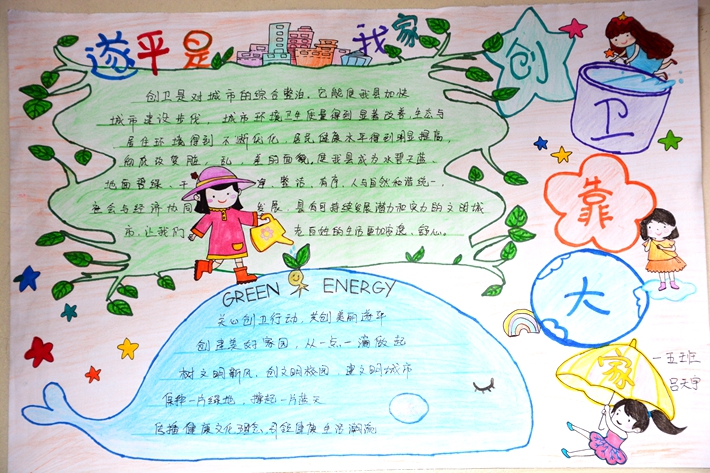 遂平是我家
创卫靠大家
创卫是对城市的综合整治,它能使我县加快
城市建设步伐,城市环境卫生质量得到显著改善,生态与
居住环境得到不断优化,居民健康水平得到明显提高,
彻底改变脏、乱、差的面貌,使我县成为水碧天蓝、
地面整绿、干 净、整洁、有序、人与自然和谐统一、
社会与经济协同 发展、具有可持续发展潜力和实力的文明城
市,让我们 老百姓的生活更加安逸、舒心。
GREEN ENERGY
关心创卫行动,共创美丽遂平
创建美好家园,从一点一滴做起
树文明新风,创文明校园,建文明城市
保护一片绿地,撑起一片蓝天
传播健康文化观念,引领健康生活潮流
一五班
吕天宇